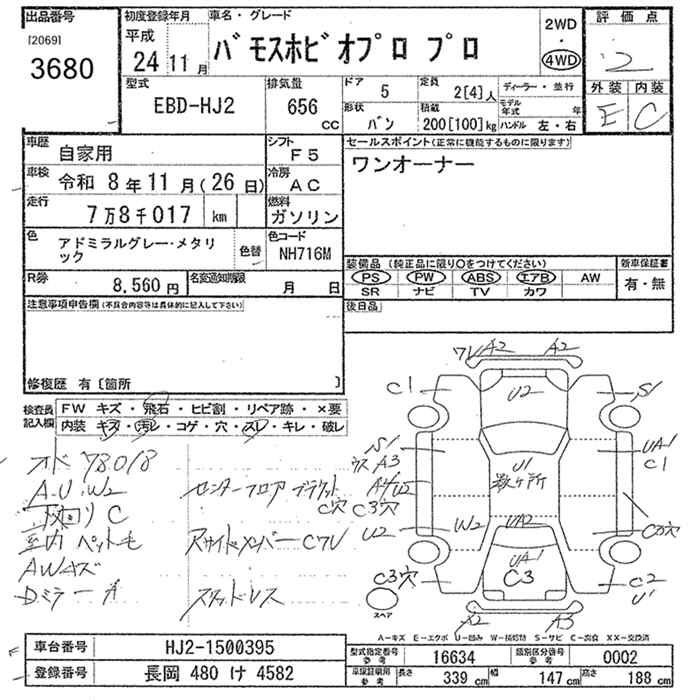 出品番号
[2069]
3680
初度登録年月
平成
24 11月
車名・グレード
バモスホビオプロ プロ
2WD
・
4WD
評価点
2
外装 内装
E C
型式
EBD-HJ2
排気量
656 cc
ドア 5
定員 2[4]人
形状 バン
積載 200[100]kg
ディーラー・並行
モデル年式 年
ハンドル 左・右
車歴 自家用
シフト F5
車検 令和 8年 11月(26日)
冷房 AC
走行 7万8千017 km
燃料 ガソリン
色 アドミラルグレー・メタリック
色替
色コード NH716M
R券 8,560円
名変通知期限 月 日
セールスポイント(正常に機能するものに限ります)
ワンオーナー
装備品(純正品に限り○をつけてください)
PS PW ABS エアB AW
SR ナビ TV カワ
新車保証書
有・無
後日品
注意事項申告欄(不具合内容等は具体的に記入して下さい)
修復歴 有〔箇所 〕
検査員記入欄
FW キズ・飛石・ヒビ割・リペア跡・×要
内装 キズ・汚レ・コゲ・穴・スレ・キレ・破レ
オド 78018
A・U・W2
下回り C
室内 ペット毛
AWキズ
Dミラーキズ
センターフロア ブラケットC穴
Rサイドメンバー C7U
スタッドレス
7U A2 A2
C1 U2 S1
S1
A3
A4 U2
C穴 C3穴
U2 W2
U1
数ヶ所
UA2
UA1
C3
UA1
C1
C穴
C3穴
C2
U1
スペア
A2 A3
A-キズ E-エクボ U-凹み W-補修跡 S-サビ C-腐食 XX-交換済
車台番号 HJ2-1500395
登録番号 長岡 480 け 4582
型式指定番号参考 16634
類別区分番号参考 0002
車検証期用参考 長さ 339cm 幅 147cm 高さ 188cm